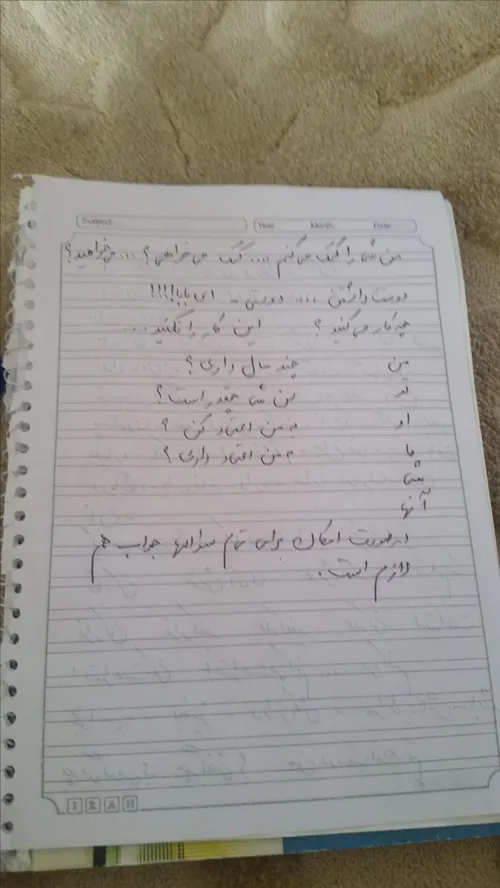 Subject: Year Month Date
من شما را کمک می کنم .... کمک می خواهی؟ ... می خواهید؟
دوست داشتن .... دوستی ... ای بابا!!!!
چه کار می کنید؟ این کار را نکنید ...
من چند سال داری؟
تو سن شما چقدر است؟
او به من اعتماد کن ؟
ما به من اعتماد داری؟
شما
آنها
در صورت امکان برای تمام سوالها جواب هم
لازم است.
IRAN